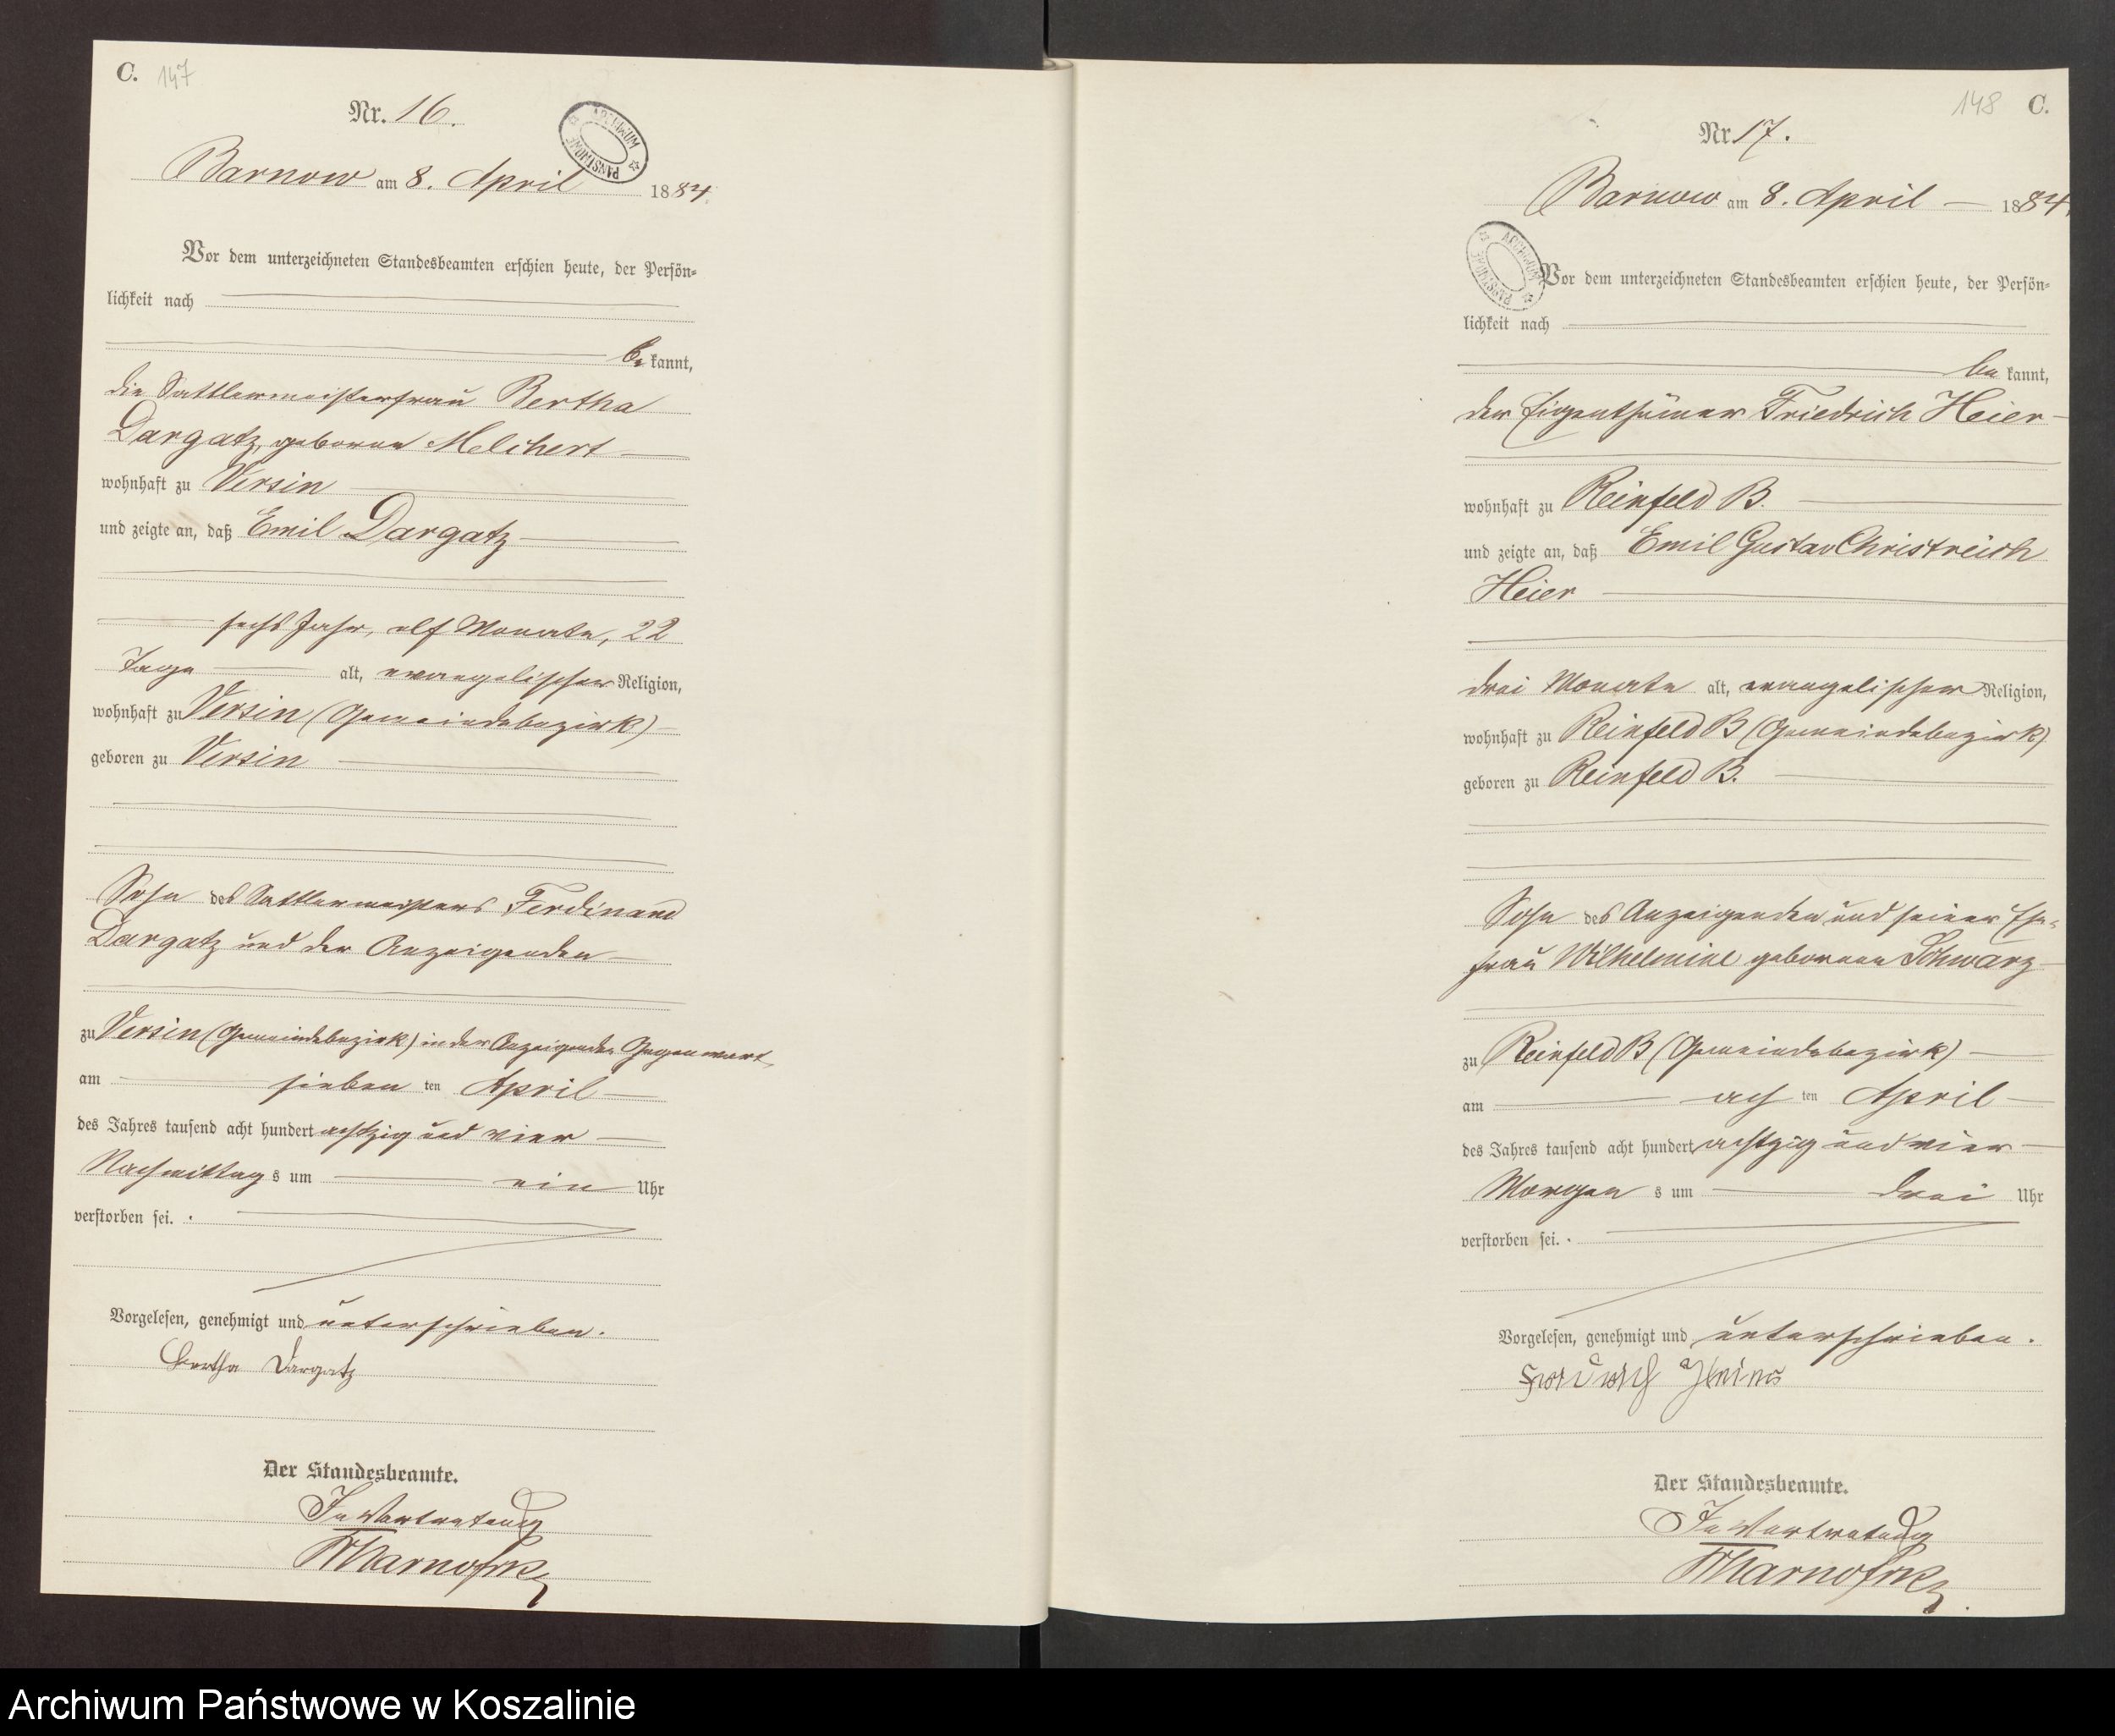 C. 147
Nr. 16.
ARCHIWUM PAŃSTWOWE
Barnow am 8. April 1884.
Vor dem unterzeichneten Standesbeamten erschien heute, der Persön-
lichkeit nach
be kannt,
die Sattlermeisterfrau Bertha
Dargatz, geborne Melchert
wohnhaft zu Versin
und zeigte an, daß Emil Dargatz
sechs Jahr, elf Monate, 22
Tage alt, evangelischer Religion,
wohnhaft zu Versin (Gemeindebezirk)
geboren zu Versin
Sohn des Sattlermeisters Ferdinand
Dargatz und der Anzeigenden
zu Versin (Gemeindebezirk) in der Anzeigenden Gegenwart,
am sieben ten April
des Jahres tausend acht hundert achtzig und vier
Nachmittag s um ein Uhr
verstorben sei.
Vorgelesen, genehmigt und unterschrieben.
Bertha Dargatz
Der Standesbeamte.
In Vertretung
148 C.
Nr. 17.
ARCHIWUM PAŃSTWOWE
Barnow am 8. April 1884.
Vor dem unterzeichneten Standesbeamten erschien heute, der Persön-
lichkeit nach
be kannt,
der Eigenthümer Friedrich Heier
wohnhaft zu Reinfeld B.
und zeigte an, daß Emil Gustav Christreich
Heier
drei Monate alt, evangelischer Religion,
wohnhaft zu Reinfeld B (Gemeindebezirk)
geboren zu Reinfeld B.
Sohn des Anzeigenden und seiner Ehe-
frau Wilhelmine gebornen Schwarz
zu Reinfeld B (Gemeindebezirk)
am ach ten April
des Jahres tausend acht hundert achtzig und vier
Morgen s um drei Uhr
verstorben sei.
Vorgelesen, genehmigt und unterschrieben.
Friedrich
Der Standesbeamte.
In Vertretung
Archiwum Państwowe w Koszalinie